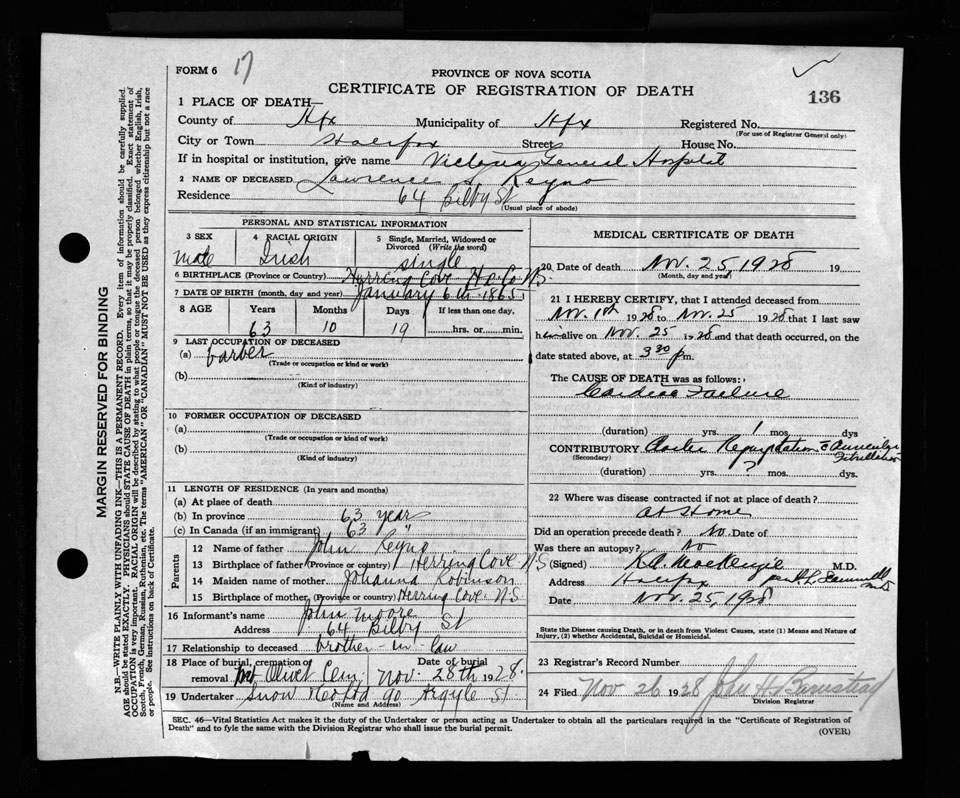 FORM 6
17
PROVINCE OF NOVA SCOTIA
CERTIFICATE OF REGISTRATION OF DEATH
136
1 PLACE OF DEATH—
County of Hfx Municipality of Hfx Registered No.
(For use of Registrar General only)
City or Town Halifax Street House No.
If in hospital or institution, give name Victoria General Hospital
2 NAME OF DECEASED Lawrence Reyno
Residence 64 Bilby St
(Usual place of abode)
PERSONAL AND STATISTICAL INFORMATION
3 SEX male
4 RACIAL ORIGIN Irish
5 Single, Married, Widowed or Divorced (Write the word) single
6 BIRTHPLACE (Province or Country) Herring Cove Hx Co N.S.
7 DATE OF BIRTH (month, day and year) January 6th 1865
8 AGE Years Months Days If less than one day,
63 10 19 hrs. or min.
9 LAST OCCUPATION OF DECEASED
(a) barber
(Trade or occupation or kind of work)
(b)
(Kind of industry)
10 FORMER OCCUPATION OF DECEASED
(a)
(Trade or occupation or kind of work)
(b)
(Kind of industry)
11 LENGTH OF RESIDENCE (In years and months)
(a) At place of death
(b) In province 63 years
(c) In Canada (if an immigrant) 63 "
Parents
12 Name of father John Reyno
13 Birthplace of father (Province or country) Herring Cove N S
14 Maiden name of mother Johanna Robinson
15 Birthplace of mother (Province or country) Herring Cove N.S.
16 Informant's name John Moore
Address 64 Bilby St
17 Relationship to deceased brother-in-law
18 Place of burial, cremation or removal Mt Olivet Cem Date of burial Nov. 28th 1928.
19 Undertaker Snow & Co Ltd 90 Argyle St
(Name and Address)
MEDICAL CERTIFICATE OF DEATH
20 Date of death Nov. 25, 1928 19
(Month, day and year)
21 I HEREBY CERTIFY, that I attended deceased from
Nov. 1st 1928 to Nov 25 1928 that I last saw
him alive on Nov. 25 1928 and that death occurred, on the
date stated above, at 3 30 p m.
The CAUSE OF DEATH was as follows:
Cardiac Failure
(duration) yrs. 1 mos. dys
CONTRIBUTORY Aortic Regurgitation & Auricular Fibrillation
(Secondary)
(duration) yrs. ? mos. dys.
22 Where was disease contracted if not at place of death?
at Home
Did an operation precede death? No Date of
Was there an autopsy? No
(Signed) K.A. MacKenzie M.D.
Address Halifax per
Date Nov. 25, 1928
State the Disease causing Death, or in death from Violent Causes, state (1) Means and Nature of Injury, (2) whether Accidental, Suicidal or Homicidal.
23 Registrar's Record Number
24 Filed Nov 26 1928 John H Barnstead
Division Registrar
SEC. 46—Vital Statistics Act makes it the duty of the Undertaker or person acting as Undertaker to obtain all the particulars required in the "Certificate of Registration of
Death" and to fyle the same with the Division Registrar who shall issue the burial permit.
(OVER)
MARGIN RESERVED FOR BINDING
N.B.—WRITE PLAINLY WITH UNFADING INK—THIS IS A PERMANENT RECORD. Every item of information should be carefully supplied.
AGE should be stated EXACTLY. PHYSICIANS should STATE CAUSE OF DEATH in plain terms, so that it may be properly classified. Exact statement of
OCCUPATION is very important. RACIAL ORIGIN will be described by stating to what people or tongue the deceased person belonged whether English, Irish,
Scotch, French, German, Russian, Ruthenian, etc. The terms "AMERICAN" OR "CANADIAN" MUST NOT BE USED as they express citizenship but not a race
or people. See instructions on back of Certificate.